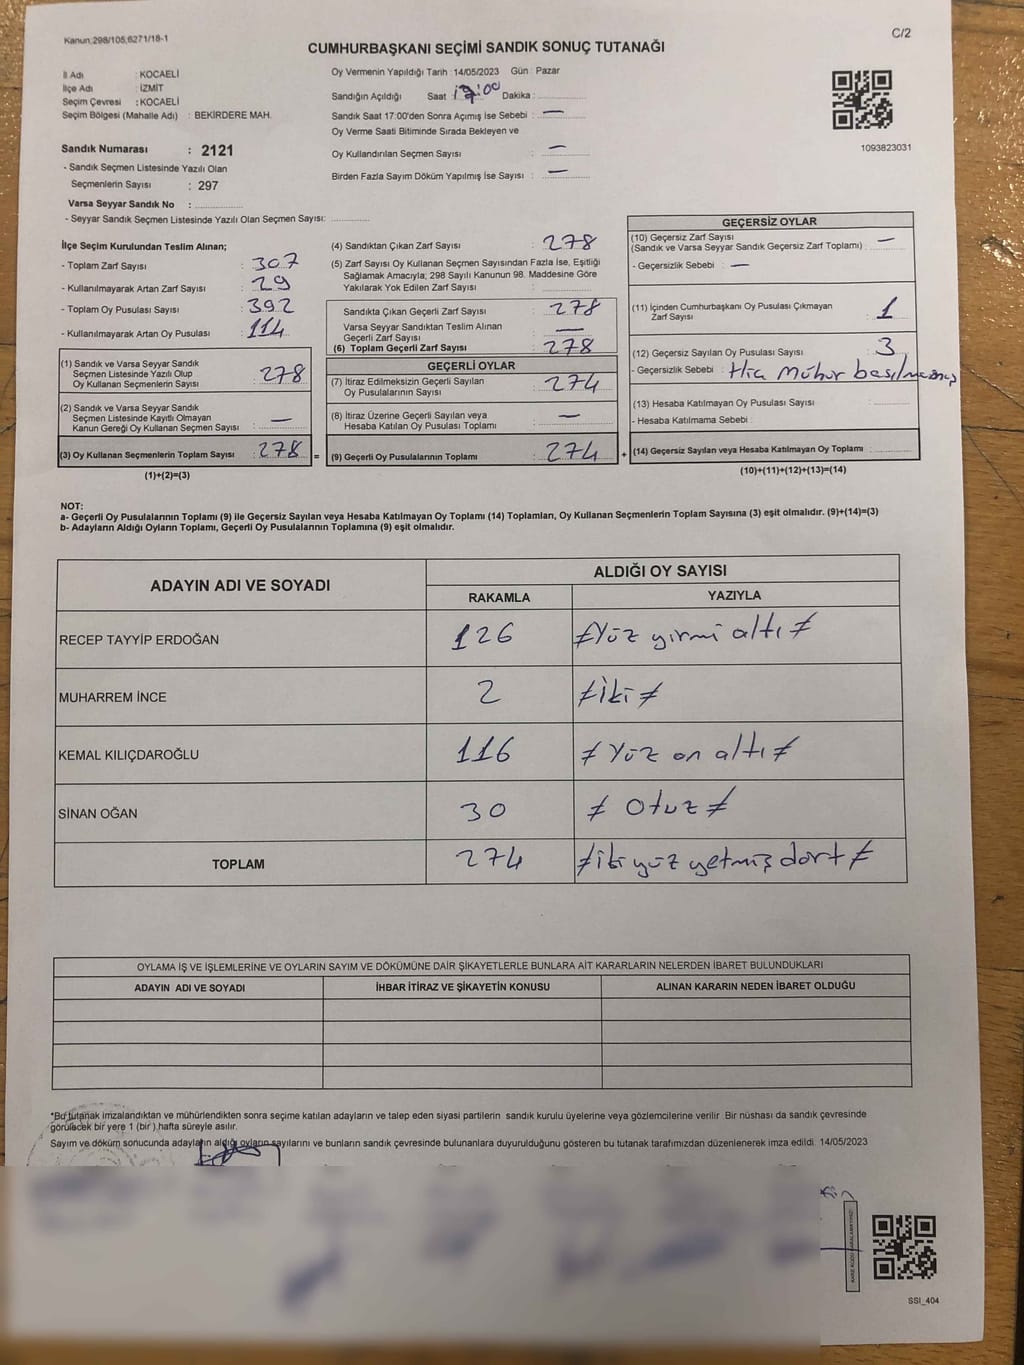 Kanun:298/105,6271/18-1
C/2
CUMHURBAŞKANI SEÇİMİ SANDIK SONUÇ TUTANAĞI
İl Adı : KOCAELİ
İlçe Adı : İZMİT
Seçim Çevresi : KOCAELİ
Seçim Bölgesi (Mahalle Adı) : BEKİRDERE MAH.
Sandık Numarası : 2121
- Sandık Seçmen Listesinde Yazılı Olan
Seçmenlerin Sayısı : 297
Varsa Seyyar Sandık No :
- Seyyar Sandık Seçmen Listesinde Yazılı Olan Seçmen Sayısı:
Oy Vermenin Yapıldığı Tarih : 14/05/2023 Gün : Pazar
Sandığın Açıldığı Saat 17:00 Dakika :
Sandık Saat 17:00'den Sonra Açımış İse Sebebi : —
Oy Verme Saati Bitiminde Sırada Bekleyen ve
Oy Kullandırılan Seçmen Sayısı : —
Birden Fazla Sayım Döküm Yapılmış İse Sayısı : —
1093823031
İlçe Seçim Kurulundan Teslim Alınan;
- Toplam Zarf Sayısı : 307
- Kullanılmayarak Artan Zarf Sayısı : 29
- Toplam Oy Pusulası Sayısı : 392
- Kullanılmayarak Artan Oy Pusulası : 114
(1) Sandık ve Varsa Seyyar Sandık
Seçmen Listesinde Yazılı Olup
Oy Kullanan Seçmenlerin Sayısı : 278
(2) Sandık ve Varsa Seyyar Sandık
Seçmen Listesinde Kayıtlı Olmayan
Kanun Gereği Oy Kullanan Seçmen Sayısı : —
(3) Oy Kullanan Seçmenlerin Toplam Sayısı : 278 =
(1)+(2)=(3)
(4) Sandıktan Çıkan Zarf Sayısı : 278
(5) Zarf Sayısı Oy Kullanan Seçmen Sayısından Fazla İse, Eşitliği
Sağlamak Amacıyla; 298 Sayılı Kanunun 98. Maddesine Göre
Yakılarak Yok Edilen Zarf Sayısı :
Sandıkta Çıkan Geçerli Zarf Sayısı : 278
Varsa Seyyar Sandıktan Teslim Alınan
Geçerli Zarf Sayısı : —
(6) Toplam Geçerli Zarf Sayısı : 278
GEÇERLİ OYLAR
(7) İtiraz Edilmeksizin Geçerli Sayılan
Oy Pusulalarının Sayısı : 274
(8) İtiraz Üzerine Geçerli Sayılan veya
Hesaba Katılan Oy Pusulası Toplamı : —
(9) Geçerli Oy Pusulalarının Toplamı : 274 +
GEÇERSİZ OYLAR
(10) Geçersiz Zarf Sayısı
(Sandık ve Varsa Seyyar Sandık Geçersiz Zarf Toplamı) : —
- Geçersizlik Sebebi : —
(11) İçinden Cumhurbaşkanı Oy Pusulası Çıkmayan
Zarf Sayısı : 1
(12) Geçersiz Sayılan Oy Pusulası Sayısı : 3
- Geçersizlik Sebebi : Hiç Mühür basılmamış
(13) Hesaba Katılmayan Oy Pusulası Sayısı :
- Hesaba Katılmama Sebebi :
(14) Geçersiz Sayılan veya Hesaba Katılmayan Oy Toplamı :
(10)+(11)+(12)+(13)=(14)
NOT:
a- Geçerli Oy Pusulalarının Toplamı (9) ile Geçersiz Sayılan veya Hesaba Katılmayan Oy Toplamı (14) Toplamları, Oy Kullanan Seçmenlerin Toplam Sayısına (3) eşit olmalıdır. (9)+(14)=(3)
b- Adayların Aldığı Oyların Toplamı, Geçerli Oy Pusulalarının Toplamına (9) eşit olmalıdır.
ADAYIN ADI VE SOYADI
ALDIĞI OY SAYISI
RAKAMLA YAZIYLA
RECEP TAYYİP ERDOĞAN 126 ≠ Yüz yirmi altı ≠
MUHARREM İNCE 2 ≠ iki ≠
KEMAL KILIÇDAROĞLU 116 ≠ Yüz on altı ≠
SİNAN OĞAN 30 ≠ Otuz ≠
TOPLAM 274 ≠ iki yüz yetmiş dört ≠
OYLAMA İŞ VE İŞLEMLERİNE VE OYLARIN SAYIM VE DÖKÜMÜNE DAİR ŞİKAYETLERLE BUNLARA AİT KARARLARIN NELERDEN İBARET BULUNDUKLARI
ADAYIN ADI VE SOYADI İHBAR İTİRAZ VE ŞİKAYETİN KONUSU ALINAN KARARIN NEDEN İBARET OLDUĞU
*Bu tutanak imzalandıktan ve mühürlendikten sonra seçime katılan adayların ve talep eden siyasi partilerin sandık kurulu üyelerine veya gözlemcilerine verilir. Bir nüshası da sandık çevresinde
görülecek bir yere 1 (bir) hafta süreyle asılır.
Sayım ve döküm sonucunda adayların aldığı oyların sayılarını ve bunların sandık çevresinde bulunanlara duyurulduğunu gösteren bu tutanak tarafımızdan düzenlenerek imza edildi. 14/05/2023
SSI_404